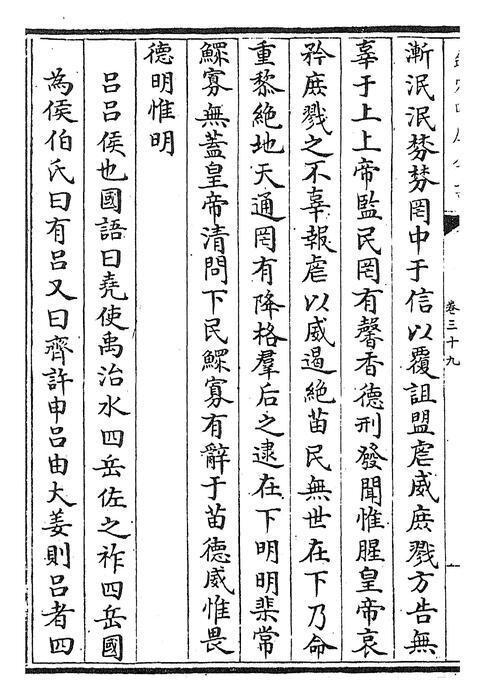 卷三十九
漸泯泯棼棼罔中于信以覆詛盟虐威庶戮方告無
辜于上上帝監民罔有馨香德刑發聞惟腥皇帝哀
矜庶戮之不辜報虐以威遏絶苗民無世在下乃命
重黎絶地天通罔有降格羣后之逮在下明明棐常
鰥寡無蓋皇帝清問下民鰥寡有辭于苗德威惟畏
德明惟明
呂呂侯也國語曰堯使禹治水四岳佐之祚四岳國
為侯伯氏曰有呂又曰齊許申呂由大姜則呂者四